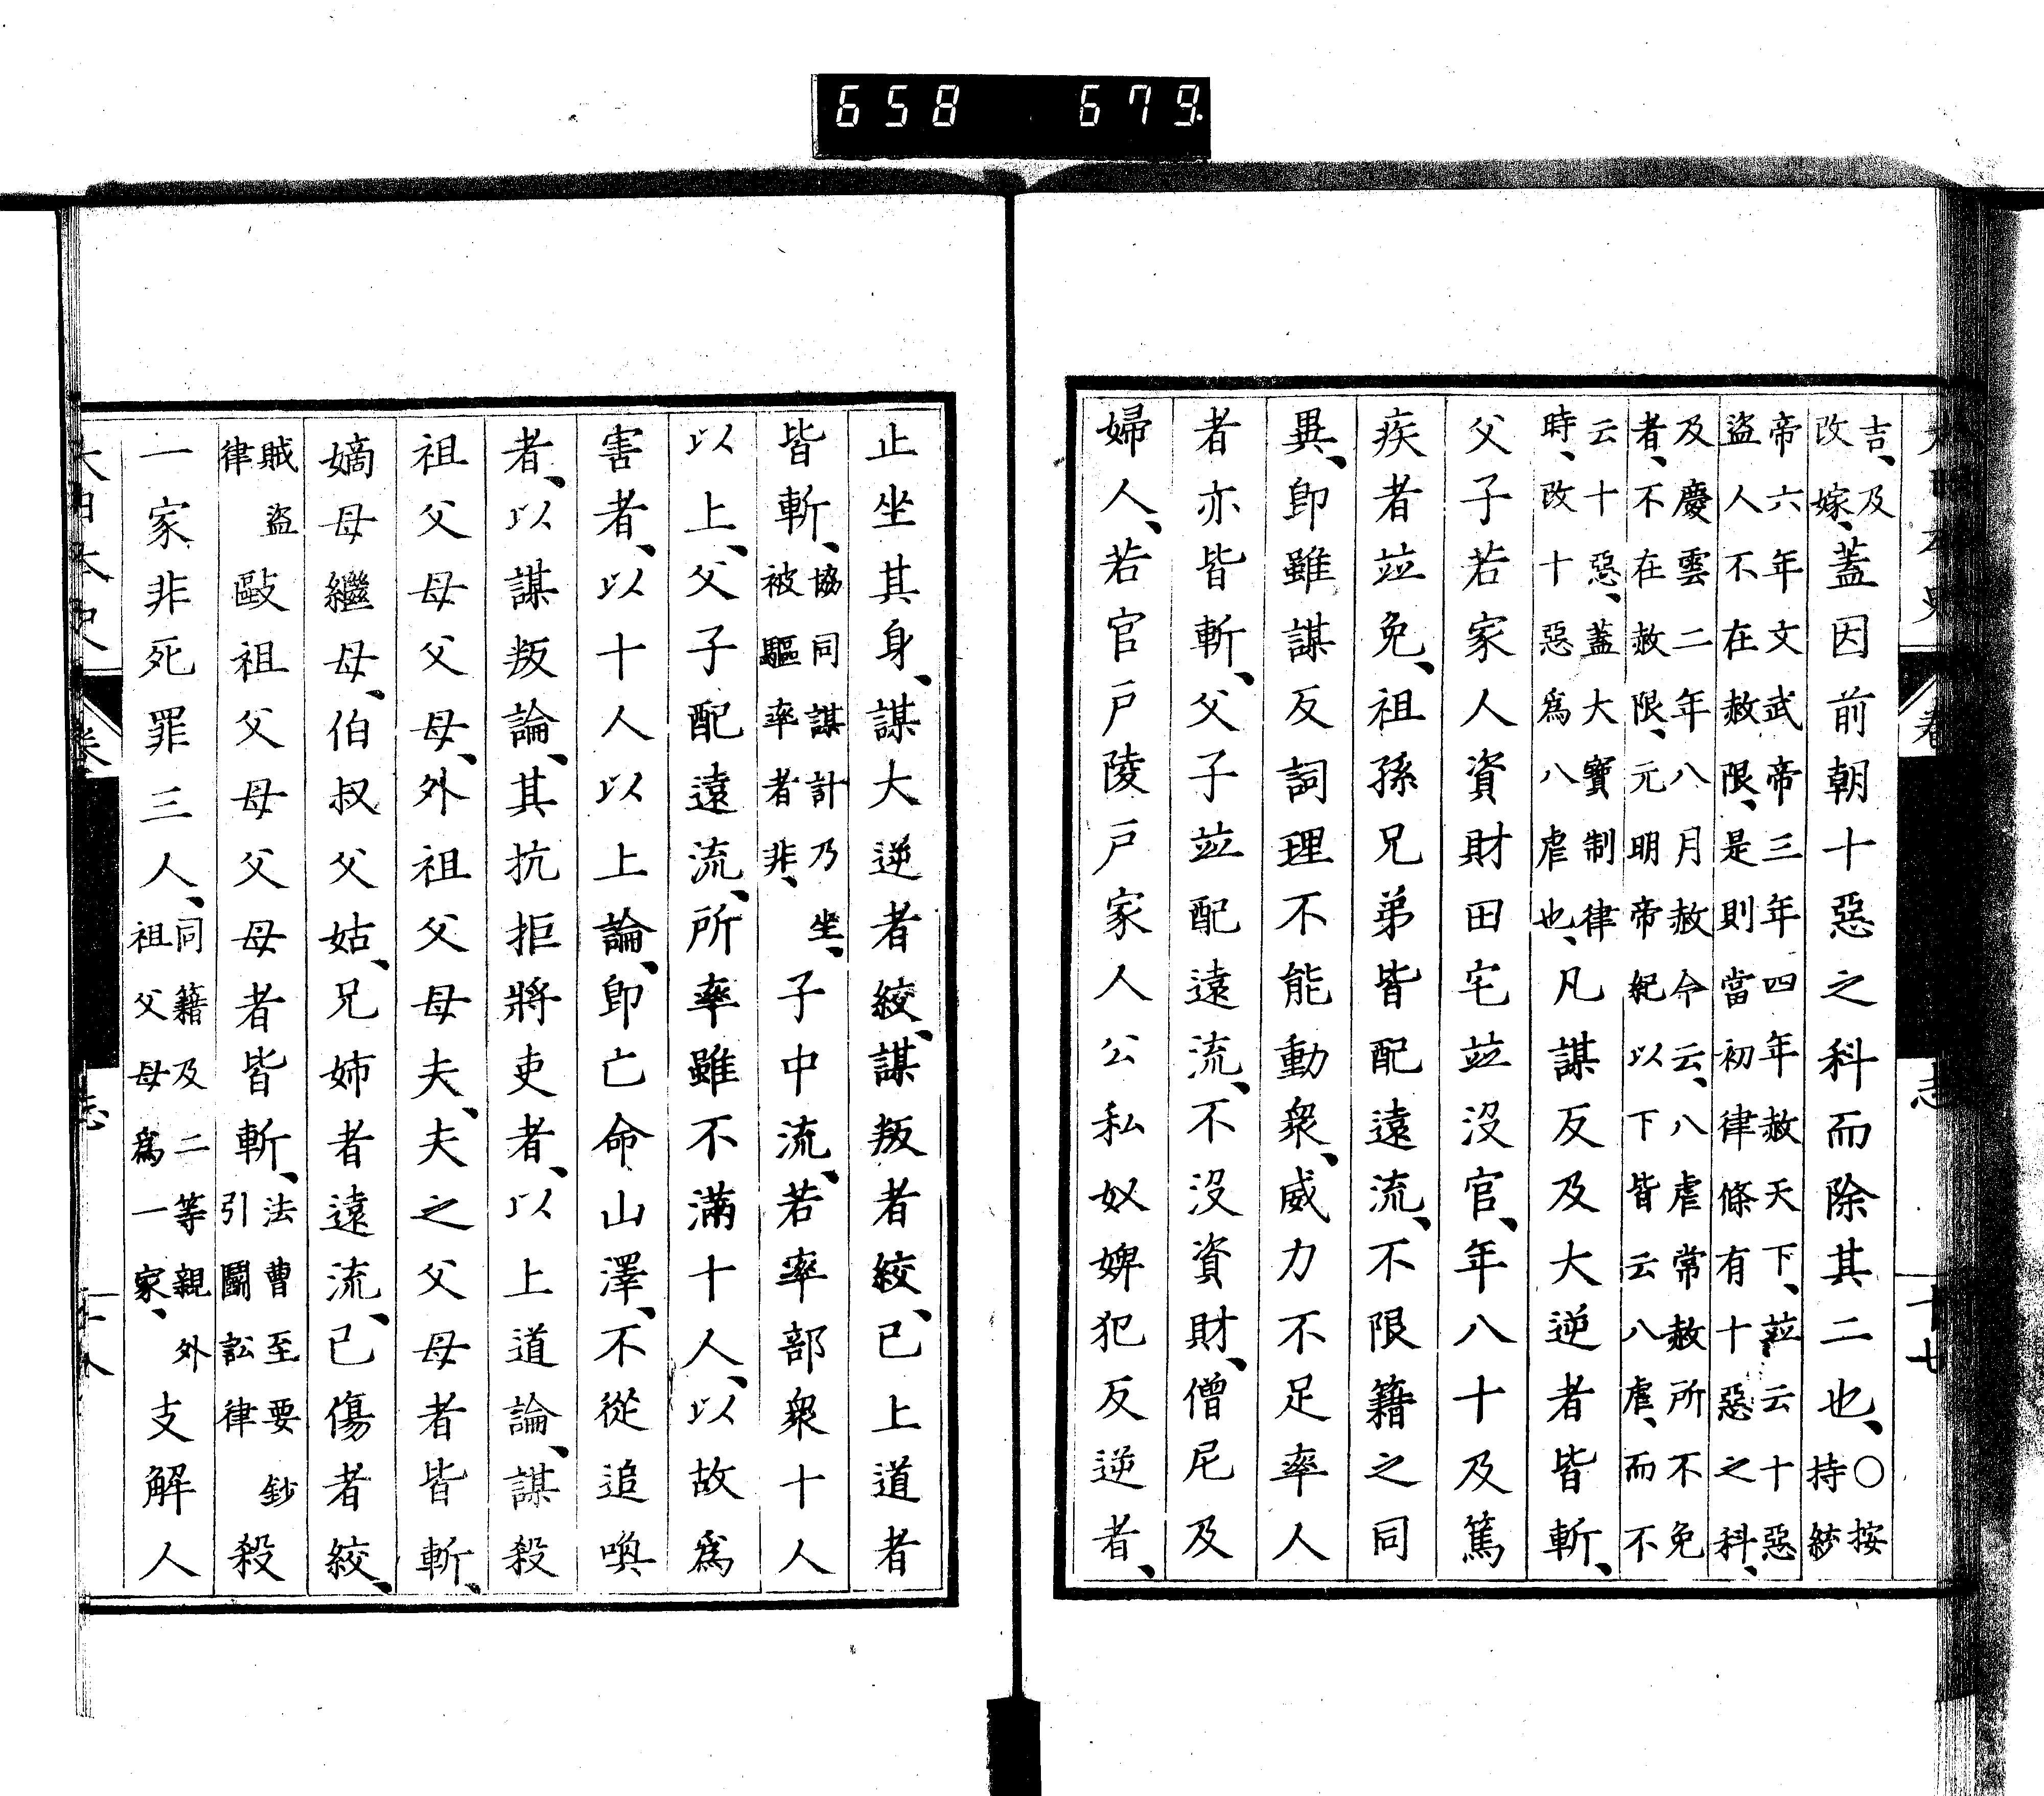 658 679
吉、及改嫁、蓋因前朝十惡之科而除其二也、〇按持統
帝六年文武帝三年四年赦天下、竝云十惡
盜人不在赦限、是則當初律條有十惡之科、
及慶雲二年八月赦令云、八虐常赦所不免
者、不在赦限、元明帝紀以下皆云八虐、而不
云十惡、蓋大寶制律時、改十惡爲八虐也、凡謀反及大逆者皆斬、
父子若家人資財田宅竝沒官、年八十及篤
疾者竝免、祖孫兄弟皆配遠流、不限籍之同
異、卽雖謀反詞理不能動衆、威力不足率人
者亦皆斬、父子竝配遠流、不沒資財、僧尼及
婦人、若官戶陵戶家人公私奴婢犯反逆者、
止坐其身、謀大逆者絞、謀叛者絞、已上道者
皆斬、協同謀計乃坐、被驅率者非、子中流、若率部衆十人
以上、父子配遠流、所率雖不滿十人、以故爲
害者、以十人以上論、卽亡命山澤、不從追喚
者、以謀叛論、其抗拒將吏者、以上道論、謀殺
祖父母父母、外祖父母夫、夫之父母者皆斬、
嫡母繼母、伯叔父姑、兄姉者遠流、已傷者絞、
賊盜律毆祖父母父母者皆斬、法曹至要鈔引鬭訟律殺
一家非死罪三人、同籍及二等親外祖父母爲一家、支解人